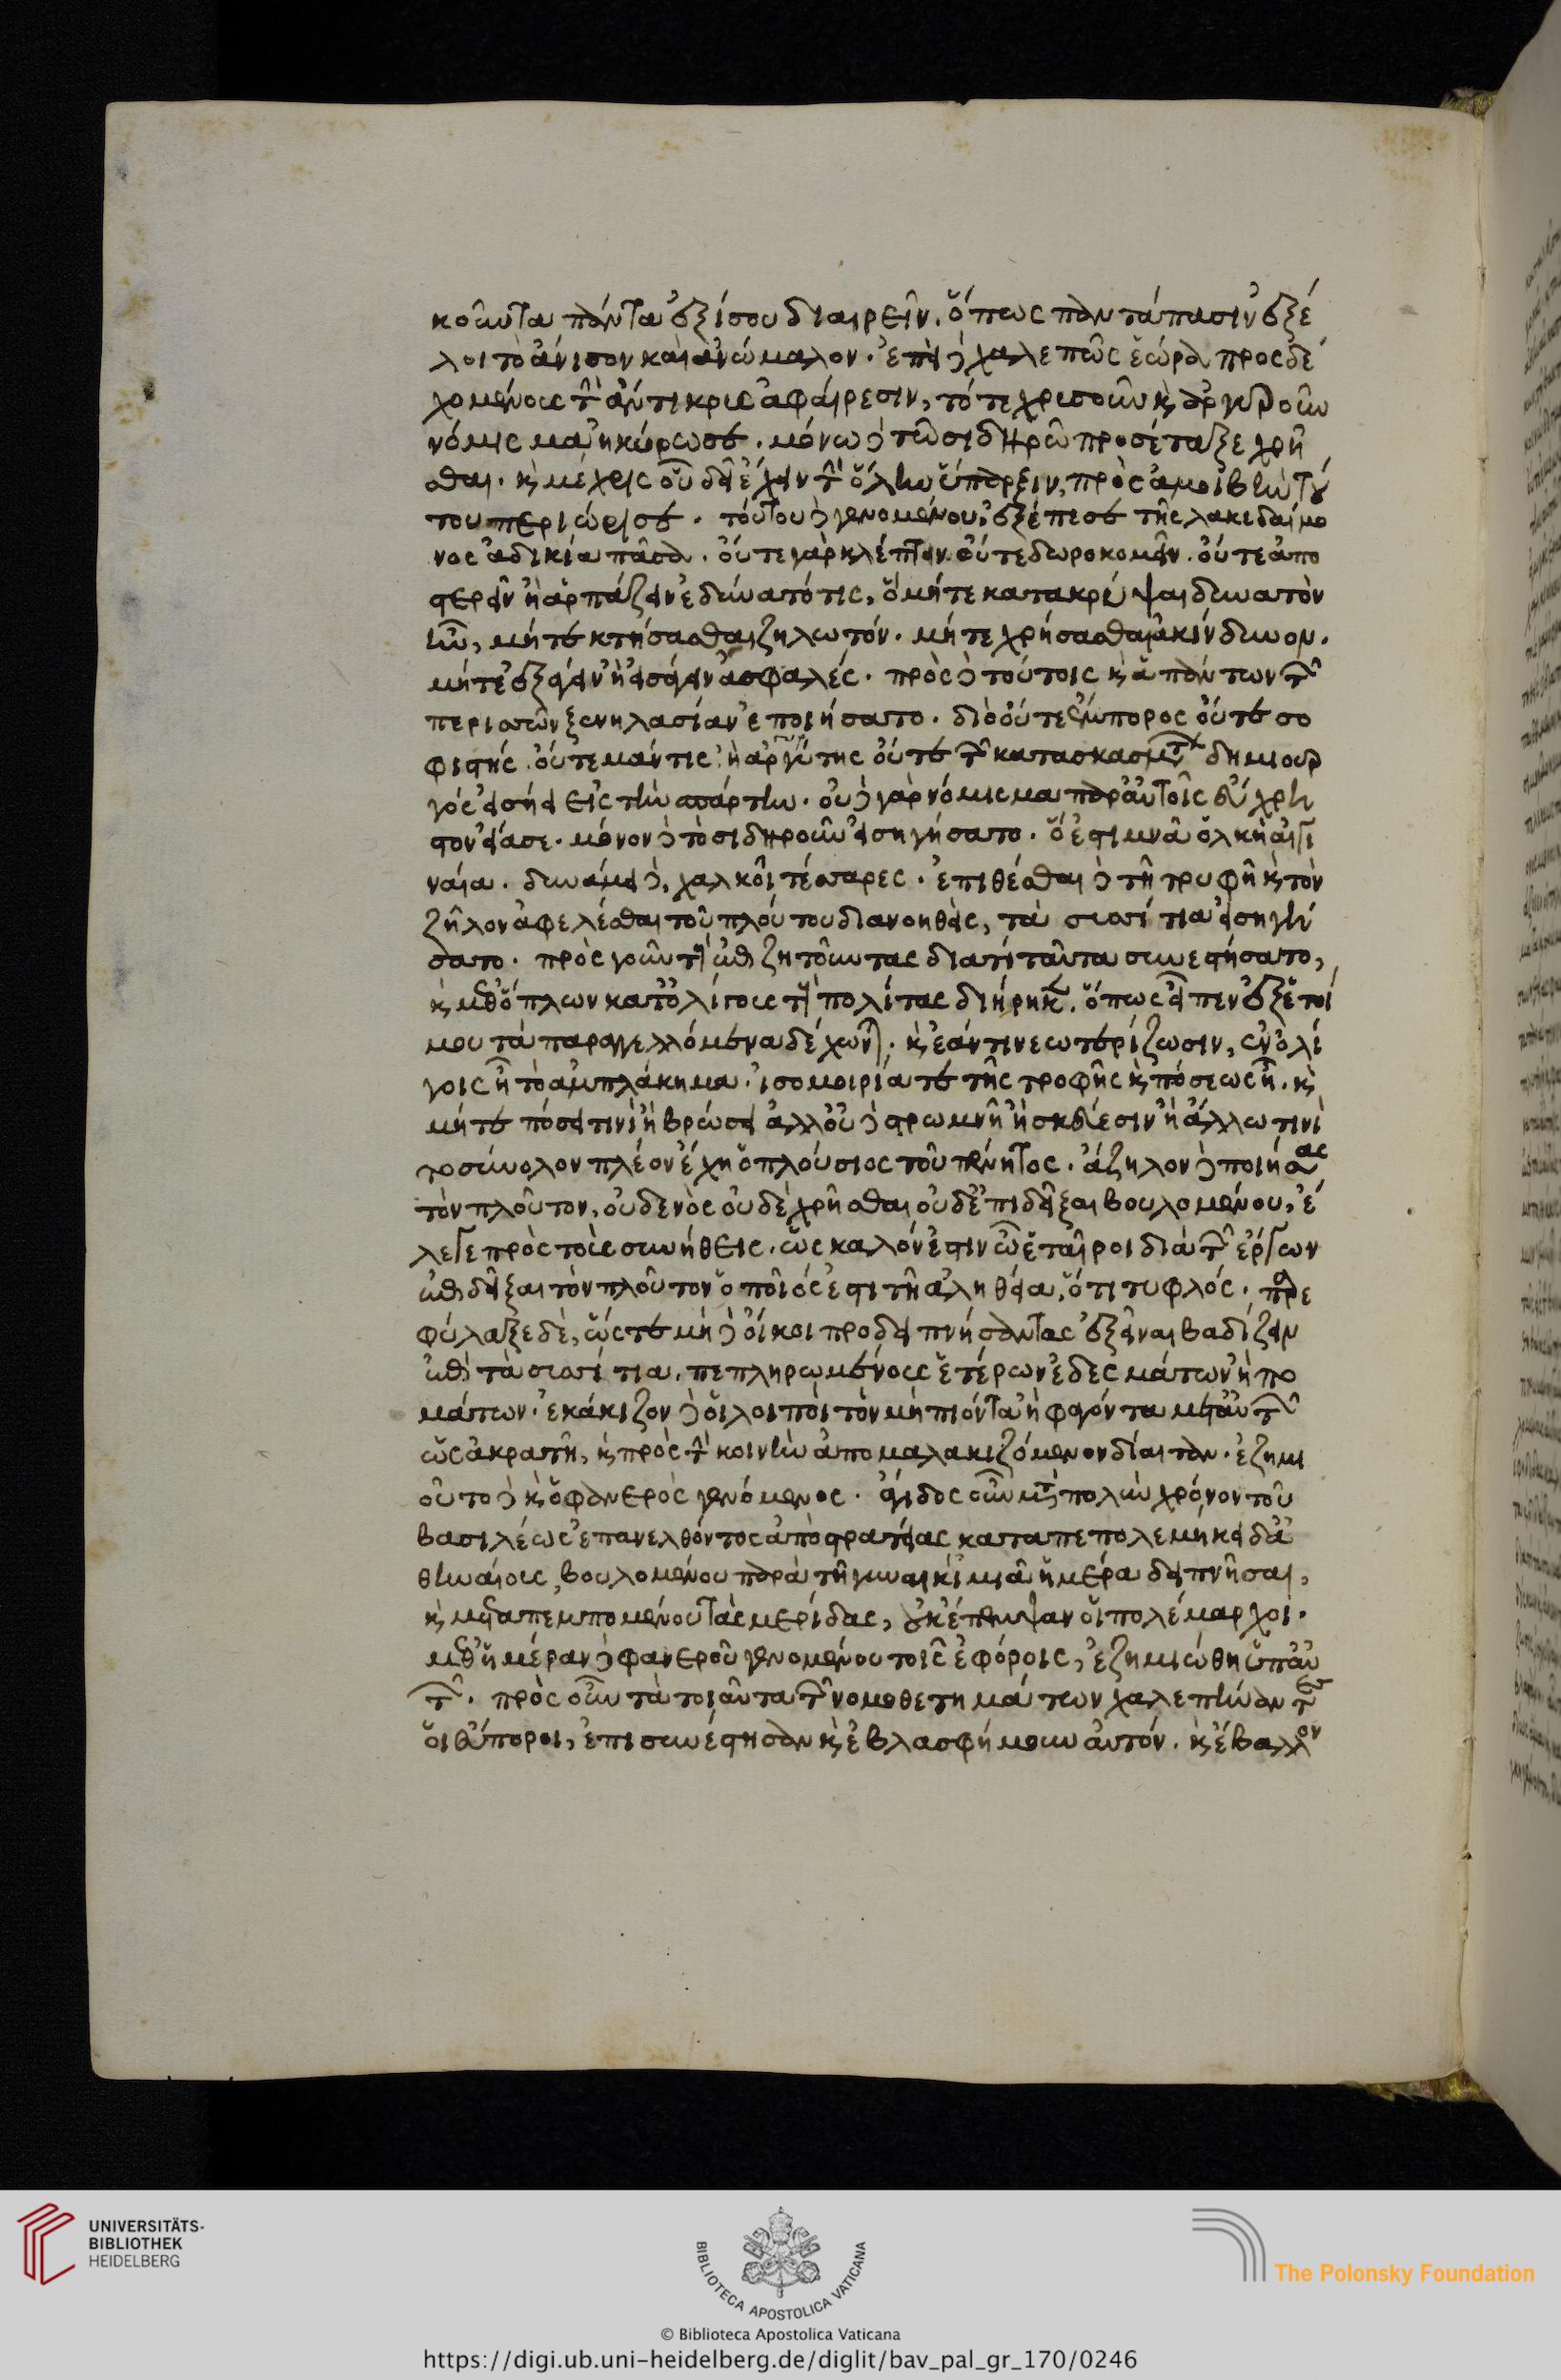 κοῦντα πάντα ἐξίσου διαιρεῖν. ὅπως παντάπασιν ἐξέ
λοι τὸ ἄνισον καὶ ἀνώμαλον. ἐπεὶ δὲ χαλεπῶς ἑώρα προσδε
χομένους τὴν ἄντικρις ἀφαίρεσιν, τό τε χρυσοῦν κ̀ ἀργυροῦν
νόμισμα ἠκύρωσε. μόνω δὲ τῶ σιδηρῶ προσέταξε χρῆ
σθαι. κ̀ μέχρις οὗ δεῖ ἔχειν τὴν ὅλην ὕπαρξιν, πρὸς ἀμοιβὴν τού
του περιώρισε. τούτου δὲ γενομένου, ἐξέπεσε τῆς λακεδαίμο
νος ἀδικία πᾶσα. οὔτε γὰρ κλέπτειν. οὔτε δωροκομεῖν. οὔτε ἀπο
στερεῖν ἢ ἁρπάζειν ἐδύνατό τις, ὃ μήτε κατακρύψαι δυνατὸν
ἦν, μήτε κτήσασθαι ζηλωτόν. μήτε χρήσασθαι ἀκίνδυνον.
μήτε ἐξάγειν ἢ εἰσάγειν ἀσφαλές. πρὸς δὲ τούτοις κ̀ ἁπάντων τῶν
περισσῶν ξενηλασίαν ἐποιήσατο. διὸ οὔτε ἔμπορος οὔτε σο
φιστής. οὔτε μάντις ἢ ἀργύτης οὔτε τῶν κατασκευασμάτων δημιουρ
γός εἰσήει εἰς τὴν σπάρτην. οὐ δὲ γὰρ νόμισμα παρ' αὐτοῖς εὔχρη
στον εἴασε. μόνον δὲ τὸ σιδηροῦν εἰσηγήσατο. ὅ ἐστι μνᾶ ὁλκῆ αἰγι
ναία. δυνάμει δὲ, χαλκοῖ τέσσαρες. ἐπιθέσθαι δὲ τῆ τρυφῆ κ̀ τὸν
ζῆλον ἀφελέσθαι τοῦ πλούτου διανοηθεὶς, τὰ συσσίτια εἰσηγή
σατο. πρὸς γοῦν τοὺς ἐπιζητοῦντας διατί ταῦτα συνεστήσατο,
κ̀ μεθ' ὅπλων κατ' ὀλίγους τοὺς πολίτας διήρηκεν. ὅπως εἶπεν ἐξ ἑτοί
μου τὰ παραγγελλόμενα δέχωνται. κ̀ ἐάν τι νεωτερίζωσιν, ἐν ὀλί
γοις ἦ τὸ ἀμπλάκημα. ἰσομοιρία τε τῆς τροφῆς κ̀ πόσεως ἦ. κ̀
μήτε πόσει τινὶ ἢ βρώσει ἀλλ' οὐ δὲ στρωμνῆ ἢ σκεύεσιν ἢ ἄλλω τινὶ
τοσύνολον πλέον ἔχη ὁ πλούσιος τοῦ πένητος. ἄζηλον δὲ ποιήσας
τὸν πλοῦτον, οὐδενὸς οὐδὲ χρῆσθαι οὐδ' ἐπιδεῖξαι βουλομένου, ἔ
λεγε πρὸς τοὺς συνήθεις. ὡς καλόν ἐστιν ὦ ἑταῖροι διὰ τῶν ἔργων
ἐπιδεῖξαι τὸν πλοῦτον ὁποῖός ἐστι τῆ ἀληθεία, ὅτι τυφλός. παρε
φύλαξε δὲ, ὥστε μὴ δὲ οἴκοι προδειπνήσαντας ἐξεῖναι βαδίζειν
ἐπὶ τὰ συσσίτια. πεπληρωμένους ἑτέρων ἐδεσμάτων ἢ πο
μάτων. ἐκάκιζον δὲ οἱ λοιποὶ τὸν μὴ πιόντα ἢ φαγόντα μετ' αὐτῶν
ὡς ἀκρατῆ, κ̀ πρὸς τὴν κοινὴν ἀπομαλακιζόμενον δίαιταν. ἐζημι
οῦτο δὲ κ̀ ὁ φανερὸς γενόμενος. ἄγιδος οὖν μετὰ πολὺν χρόνον τοῦ
βασιλέως ἐπανελθόντος ἀπὸ στρατείας καταπεπολεμήκει δὲ ἀ
θηναίους, βουλομένου παρὰ τῆ γυναικὶ μιᾶ ἡμέρα δειπνῆσαι,
κ̀ μεταπεμπομένου τὰς μερίδας, οὐκ ἔπεμψαν οἱ πολέμαρχοι.
μεθ' ἡμέραν δὲ φανεροῦ γενομένου τοῖς ἐφόροις, ἐζημιώθη ὑπ' αὐ
τῶν. πρὸς οὖν τὰ τοιαῦτα τῶν νομοθετημάτων χαλεπήναντες
οἱ εὔποροι, ἐπισυνέστησαν κ̀ ἐβλασφήμουν αὐτόν. κ̀ ἔβαλλον
UNIVERSITÄTS-
BIBLIOTHEK
HEIDELBERG
BIBLIOTECA APOSTOLICA VATICANA
The Polonsky Foundation
© Biblioteca Apostolica Vaticana
https://digi.ub.uni-heidelberg.de/diglit/bav_pal_gr_170/0246